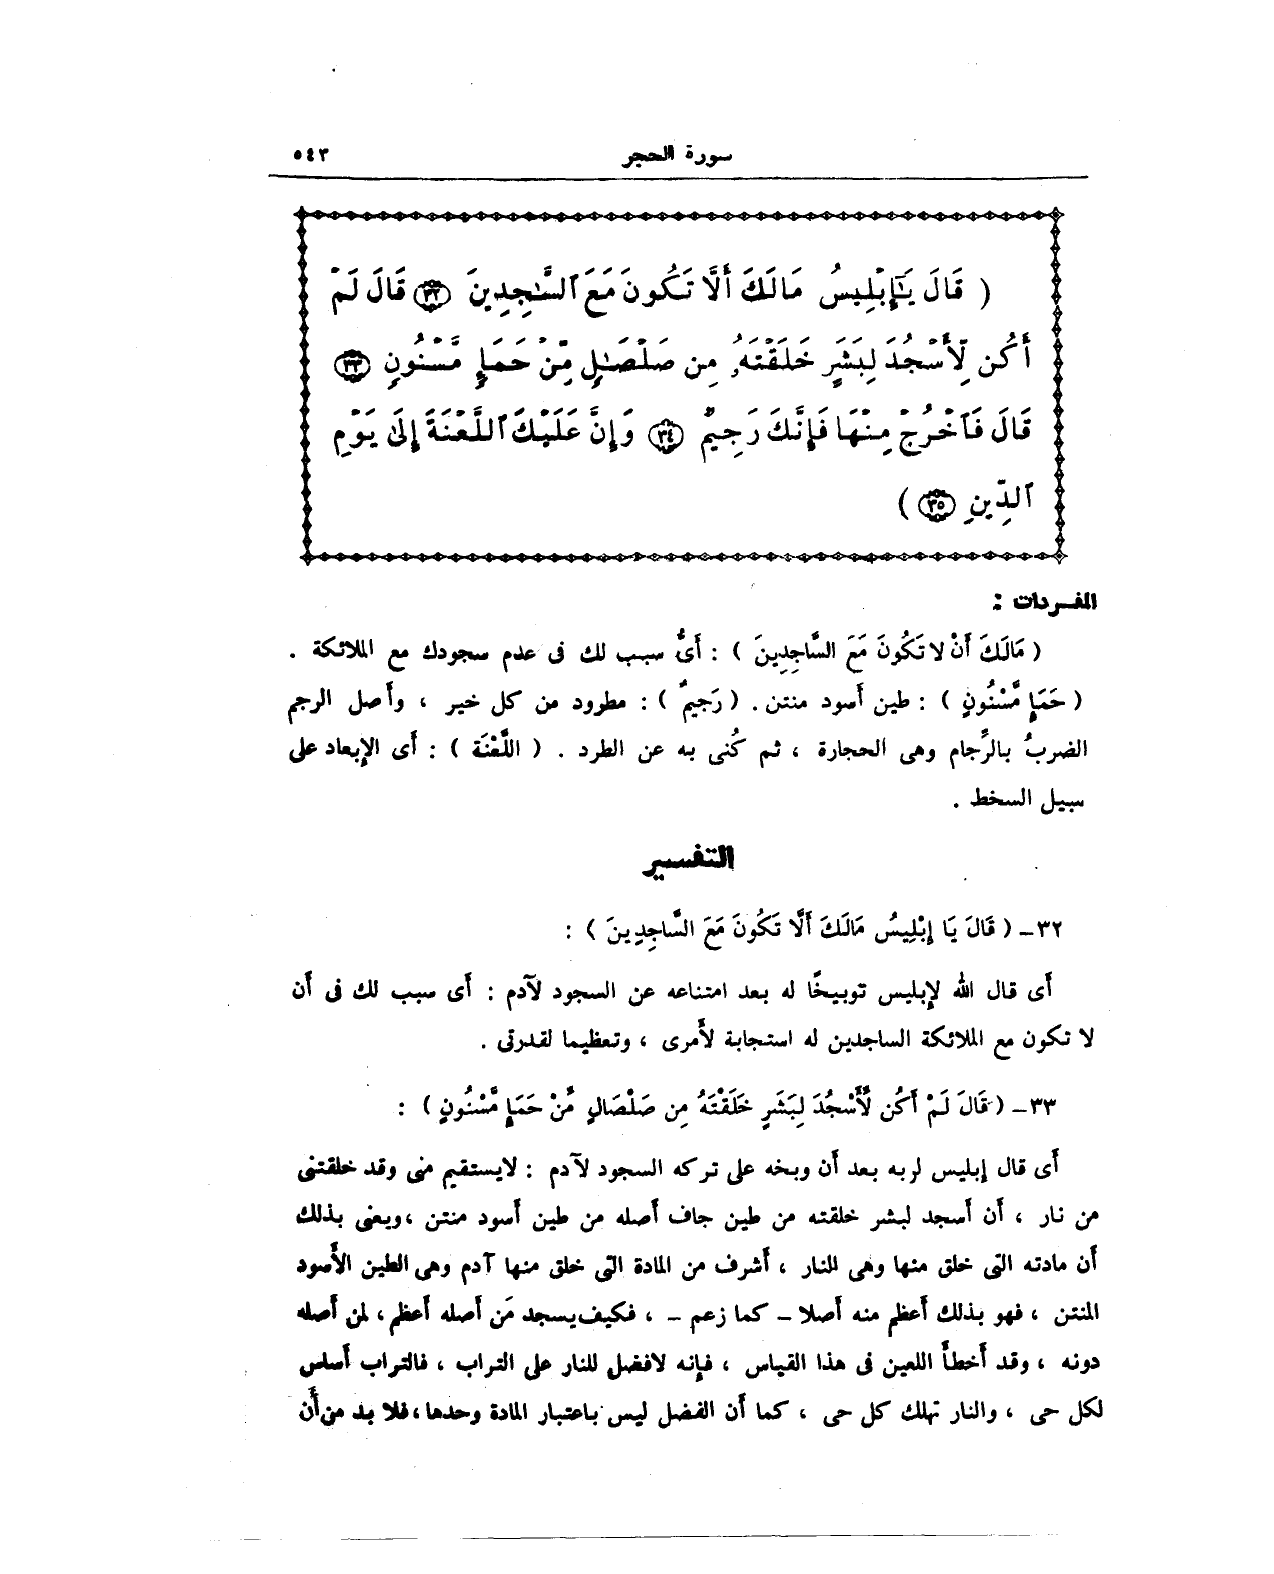 سورة الحجر ٥٤٣
( قَالَ يَٰٓإِبْلِيسُ مَالَكَ أَلَّا تَكُونَ مَعَ ٱلسَّٰجِدِينَ ٣٢ قَالَ لَمْ
أَكُن لِّأَسْجُدَ لِبَشَرٍ خَلَقْتَهُۥ مِن صَلْصَٰلٍ مِّنْ حَمَإٍ مَّسْنُونٍ ٣٣
قَالَ فَٱخْرُجْ مِنْهَا فَإِنَّكَ رَجِيمٌ ٣٤ وَإِنَّ عَلَيْكَ ٱللَّعْنَةَ إِلَىٰ يَوْمِ
ٱلدِّينِ ٣٥ )
المفردات :
( مَالَكَ أَنْ لا تَكُونَ مَعَ السَّاجِدِينَ ) : أَىُّ سبب لك فى عدم سجودك مع الملائكة .
( حَمَإٍ مَّسْنُونٍ ) : طين أسود منتن . ( رَجِيمٌ ) : مطرود من كل خير ، وأصل الرجم
الضربُ بالرِّجام وهى الحجارة ، ثم كُنى به عن الطرد . ( اللَّعْنَة ) : أى الإبعاد على
سبيل السخط .
التفسير
٣٢ – ( قَالَ يَا إِبْلِيسُ مَالَكَ أَلَّا تَكُونَ مَعَ السَّاجِدِينَ ) :
أى قال الله لإبليس توبيخًا له بعد امتناعه عن السجود لآدم : أى سبب لك فى أن
لا تكون مع الملائكة الساجدين له استجابة لأمرى ، وتعظيما لقدرتى .
٣٣ – ( قَالَ لَمْ أَكُن لِّأَسْجُدَ لِبَشَرٍ خَلَقْتَهُ مِن صَلْصَالٍ مِّنْ حَمَإٍ مَّسْنُونٍ ) :
أى قال إبليس لربه بعد أن وبخه على تركه السجود لآدم : لايستقيم منى وقد خلقتنى
من نار ، أن أسجد لبشر خلقته من طين جاف أصله من طين أسود منتن ، ويعنى بذلك
أن مادته التى خلق منها وهى النار ، أشرف من المادة التى خلق منها آدم وهى الطين الأسود
المنتن ، فهو بذلك أعظم منه أصلا – كما زعم – ، فكيف يسجد مَن أصله أعظم ، لمن أصله
دونه ، وقد أخطأ اللعين فى هذا القياس ، فإنه لافضل للنار على التراب ، فالتراب أساس
لكل حى ، والنار تهلك كل حى ، كما أن الفضل ليس باعتبار المادة وحدها ، فلا بد من أن